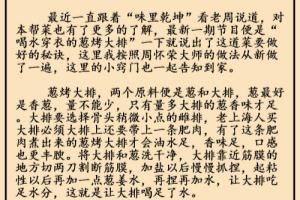 最近一直跟着“味里乾坤”看老周说道，对
本帮菜也有了更多的了解，最新一期节目便是“
喝水穿衣的葱烤大排”一下就说出了这道菜要做
好的秘诀，这里我按照周怀荣大师的做法从新做
了一遍，这里的小窍门也一起告知到家。
葱烤大排，两个原料便是葱和大排，葱最好
是香葱，量不能少，只有量多大排的葱香味才足
。大排要选择骨头稍微小点的雌排，老上海人买
大排必须大排上还要带上一条肥肉，有了这条肥
肉煮出来的葱烤大排才会油水足，香味足，口感
也更丰腴。将大排和葱洗干净，大排靠近筋膜的
地方切两刀割断筋膜，加盐以后慢慢抓捏，起粘
性以后再加一点葱姜水，再捏再加水，让大排吃
足水分，这就是让大排喝足了水。